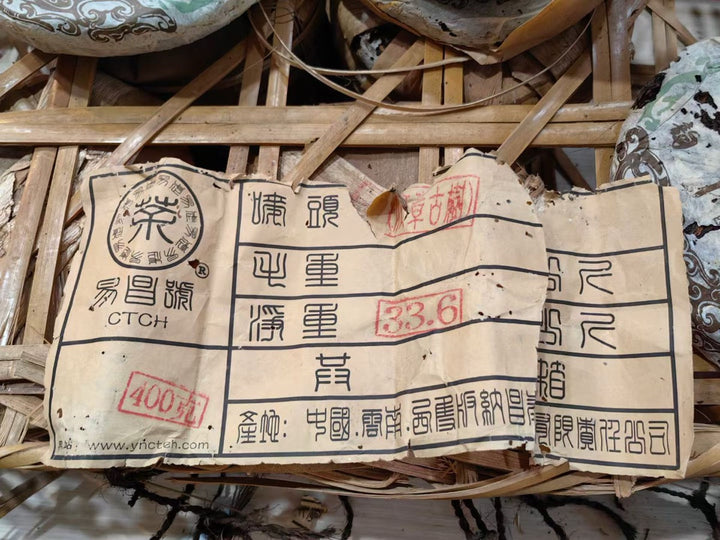 茶
®
易昌號
CTCH
400克
www.ynctch.com
嘜頭 章古樹
毛重 公斤
淨重 33.6 公斤
共
產地: 中國.雲南.西雙版納昌 限責任公司